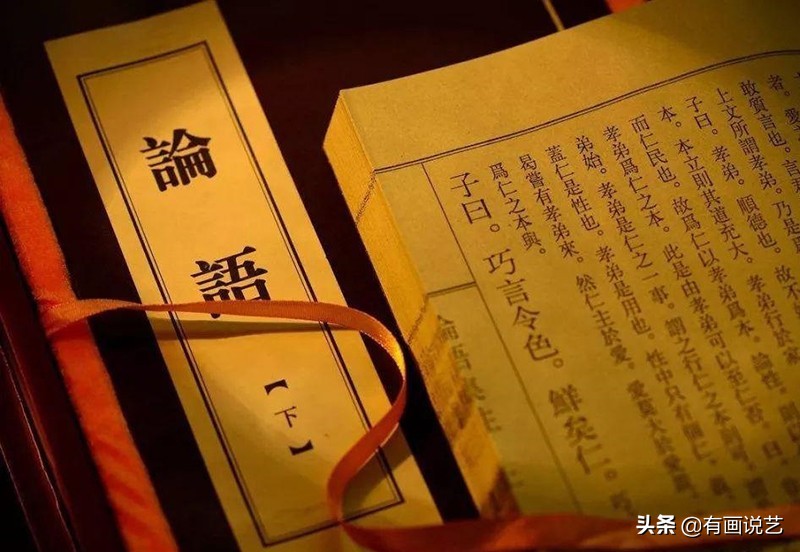 論語
【下】
者。
敢質言也。言君
上文所謂孝弟。乃是
子曰。孝弟。順德也。故不
本。本立則其道充大。孝弟行於家
而仁民也。故爲仁以孝弟爲本。論性。則以
孝弟爲仁之本。此是由孝弟可以至仁否。曰。
弟始。孝弟是仁之一事。謂之行仁之本則可。
蓋仁是性也。孝弟是用也。性中只有個仁。義
曷嘗有孝弟來。然仁主於愛。愛莫大於愛親。
爲仁之本與。
子曰。巧言令色。鮮矣仁。巧
論語集註
头条 @有画说艺